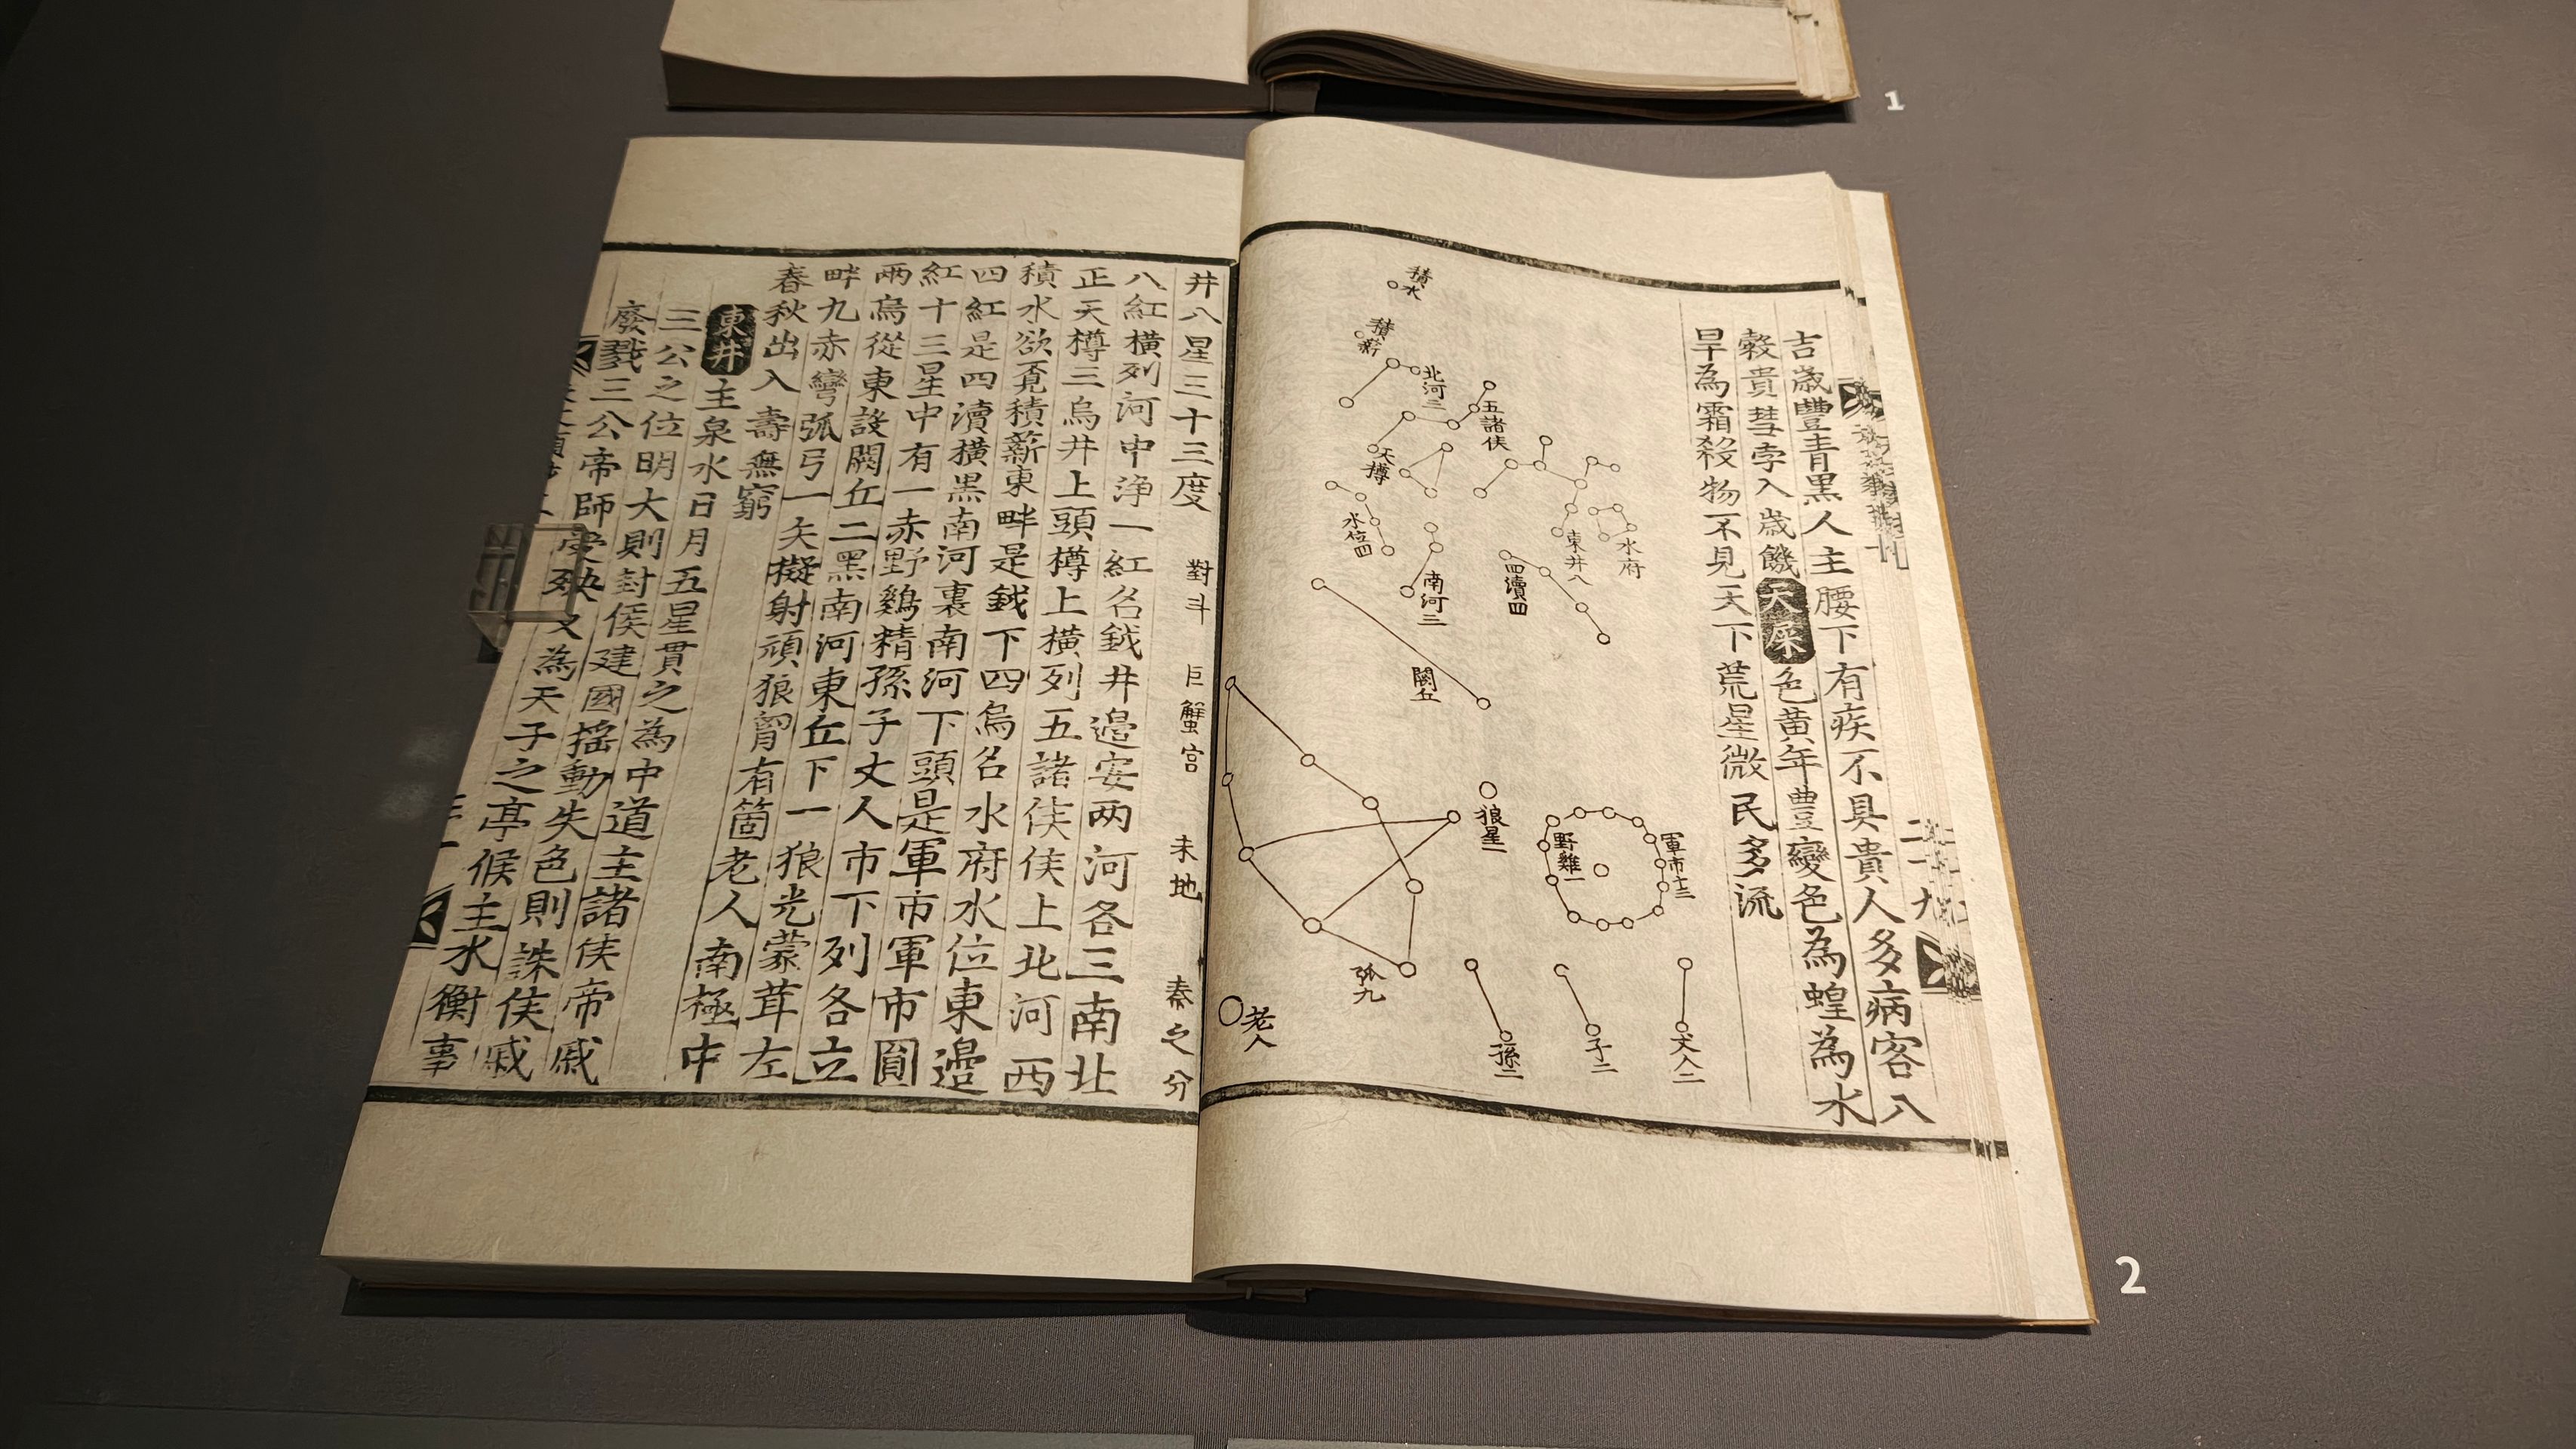 二十九
吉歲豐青黑人主腰下有疾不具貴人多病客入
穀貴彗孛入歲饑天屎色黃年豐變色為蝗為水
旱為霜殺物不見天下荒星微民多流
積水
積薪
北河三
五諸侯
天樽
水位四
東井八
水府
南河三
四瀆四
闕丘
狼星一
野雞一
軍市十三
弧九
老人
丈人二
子二
孫二
井八星三十三度 對斗 巨蟹宮 未地 秦之分
八紅橫列河中淨一紅名鉞井邉安两河各三南北
正天樽三烏井上頭樽上橫列五諸侯侯上北河西
積水欲覔積薪東畔是鉞下四烏名水府水位東邉
四紅是四瀆橫黑南河裏南河下頭是軍市軍市圓
紅十三星中有一赤野鷄精孫子丈人市下列各立
兩烏從東設闕丘二黑南河東丘下一狼光蒙茸左
畔九赤彎弧弓一矢擬射頑狼胷有箇老人南極中
春秋出入壽無窮
東井主泉水日月五星貫之為中道主諸侯帝戚
三公之位明大則封侯建國搖動失色則誅侯戚
廢戮三公帝師受殃又為天子之亭候主水衡事
1
2